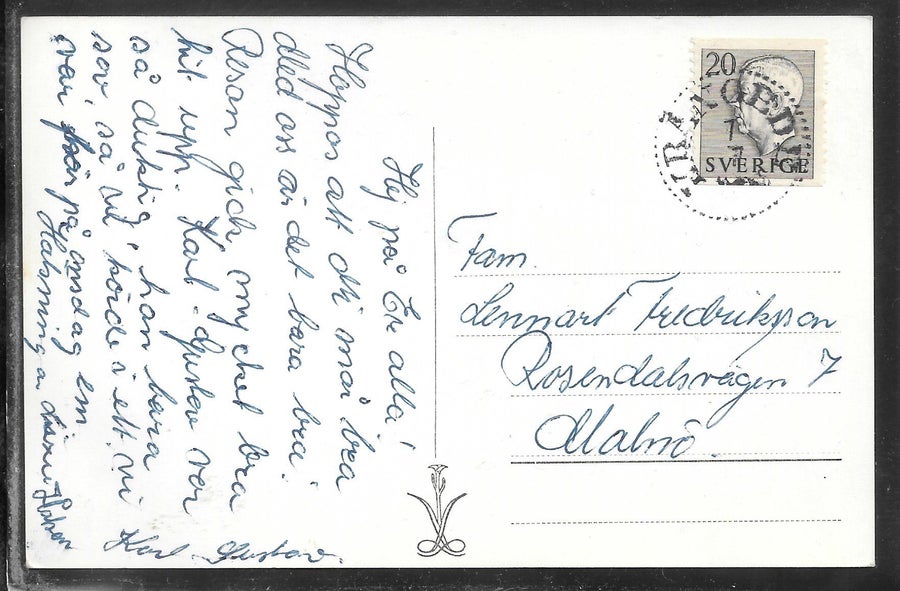 Hej på Er alla!
Hoppas att det må bra
med oss är det bara bra.
Resan gick mycket bra
hit upp. Karl-Gustav var
så duktig, han bara
sov, så vi körde i ett. Vi
var på onsdag em
Hälsningar
Karl Gustav.
20
SVERIGE
Fam.
Lennart Fredriksson
Rosendalsvägen 7
Malmö